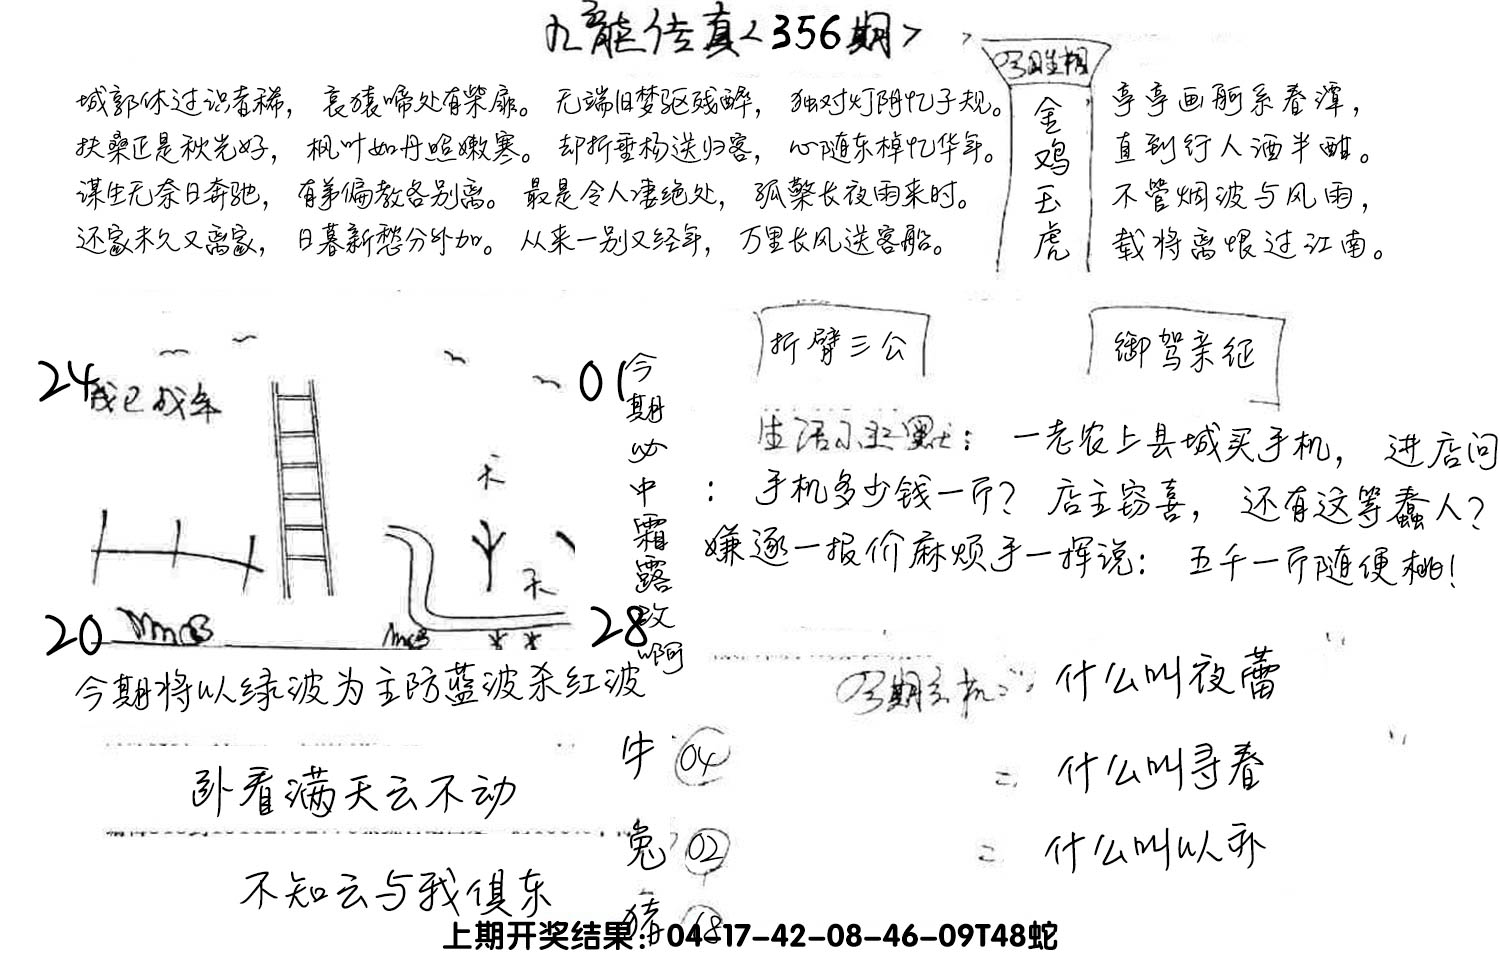 九龙传真<356期>
城郭休过识者稀，哀猿啼处有柴扉。无端旧梦驱残醉，独对灯阴忆子规。
扶桑正是秋光好，枫叶如丹照嫩寒。却折垂杨送归客，心随东棹忆华年。
谋生无奈日奔驰，有弟偏教各别离。最是令人凄绝处，孤檠长夜雨来时。
还家未久又离家，日暮新愁分外加。从来一别又经年，万里长风送客船。
金鸡玉虎
亭亭画舸系春潭，
直到行人酒半酣。
不管烟波与风雨，
载将离恨过江南。
24
我已成年
01
20
28
天
天
今期必中霜露改啊
折臂三公
御驾亲征
生活小幽默：一老农上县城买手机，进店问
：手机多少钱一斤？店主窃喜，还有这等蠢人？
嫌逐一报价麻烦手一挥说：五千一斤随便挑！
今期将以绿波为主防蓝波杀红波
卧看满天云不动
不知云与我俱东
牛 04
兔 02
猪 18
今期玄机：什么叫夜蕾
= 什么叫寻春
= 什么叫以亦
上期开奖结果：04-17-42-08-46-09T48蛇